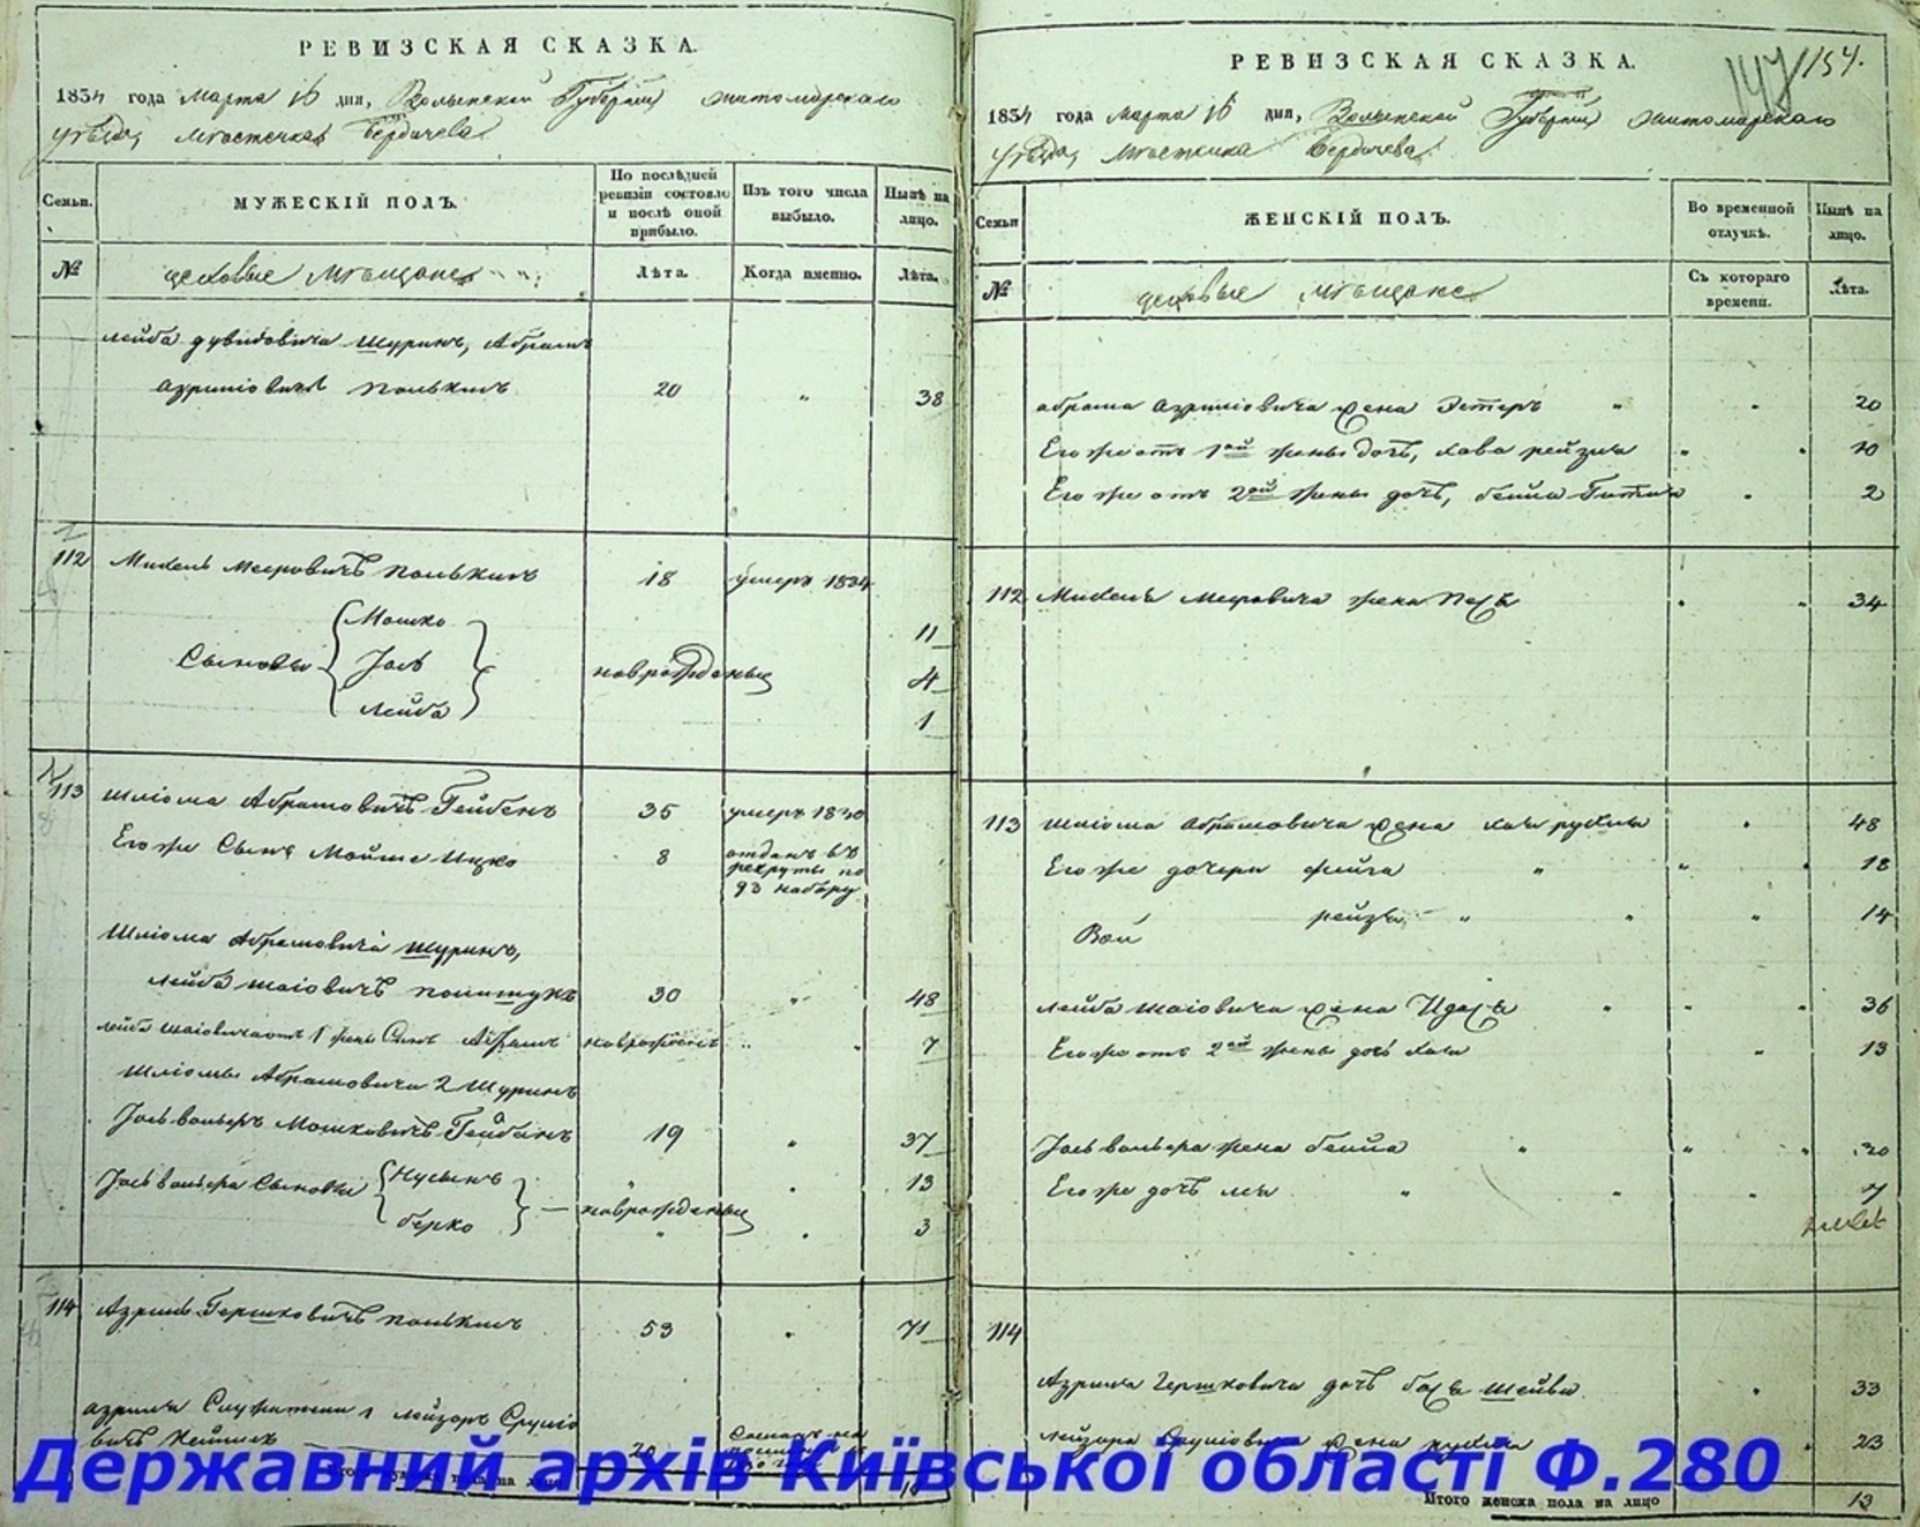 РЕВИЗСКАЯ СКАЗКА.
1834 года Марта 16 дня, Волынской Губернии Житомирскаго
уѣзда, мѣстечка Бердичева
Семьи.
МУЖЕСКІЙ ПОЛЪ.
По послѣдней ревизіи состояло и послѣ оной прибыло.
Изъ того числа выбыло.
Нынѣ на лицо.
№
цеховые мѣщане
Лѣта.
Когда именно.
Лѣта.
Лейба Дувидовича Шуринъ, Абрамъ
Азриліовичъ 20 " 38
112 Михель Мееровичъ 18 умеръ 1834
Сыновья
Мошко 11
Іось новорожденны 4
Лейба 1
113 Шліома Абрамовичъ Гейбенъ 35 умеръ 1830
Его же Сынъ Мойше Ицко 8 отданъ въ рекруты по 93 набору
Шліома Абрамовича Шуринъ,
Лейба Шаіовичъ 30 " 48
Лейба Шаіовича отъ 1 жены Сынъ Абрамъ новорожденъ " 7
Шліомы Абрамовича 2 Шуринъ
Іось Вольверъ Мошковичъ Гейбенъ 19 " 37
Іось Вольвера Сыновья
Нусынъ " 13
Берко новорожденны 3
114 Азриль Гершковичъ 53 " 71
Азриля 1 Лейзоръ Сруліо
вичъ 20
РЕВИЗСКАЯ СКАЗКА.
147 154.
1834 года Марта 16 дня, Волынской Губерніи Житомирскаго
уѣзда, Мѣстечка Бердичева
Семьи
ЖЕНСКІЙ ПОЛЪ.
Во временной отлучкѣ.
Нынѣ на лицо.
№
цеховые мѣщане
Съ котораго времени.
Лѣта.
Абрама Азриліовича жена Эстеръ " " 20
Его же отъ 1ой жены дочь, Хава Рейзля " " 10
Его же отъ 2ой жены дочь, Бейла Гитля " 2
112 Михеля Мееровича жена Песя " " 34
113 Шліома Абрамовича жена Хая Рухля " 48
Его же дочери Фейга " " " 18
Рейзя " " " 14
Лейба Шаіовича жена " " " 36
Его же отъ 2ой жены дочь Хая " 13
Іось Вольвера жена Бейла " " " 30
Его же дочь Лея " " " 7
114
Азриля Гершковича дочь Бася Шейва " 33
Лейзора Сруліовича жена Рухля " 23
Итого женска пола на лицо 13
Державний архів Київської області Ф.280